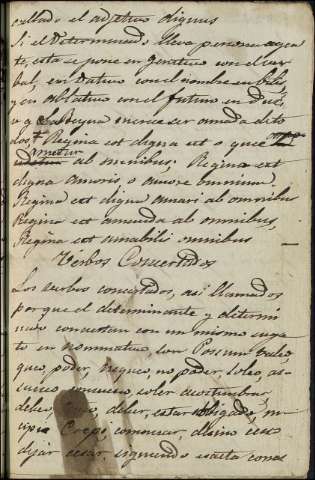 el adjetivo dignus
Si el Determinado lleva persona agen
te, esta se pone en genitivo con el ver
bal, en Dativo con el nombre en bilis,
y en ablativo con el futuro en Dus,
v g La Reyna merece ser amada de to
dos Regina est digna ut o quae
ametur ab omnibus; Regina est
digna amoris, o amore omnium
Regina est digna amari ab omnibus
Regina est amanda ab omnibus,
Regina est amabilis omnibus
Verbos Concertados
Los verbos concertados, así llamados
porque el determinante y determi
nado conciertan con un mismo supues
to en nominativo son Possum valeo,
queo, poder, nequeo, no poder, soleo, as
suesco, soler acostumbrar,
debeo, deber, estar obligado, in
cipio Coepi, comenzar, desino
dejar cesar, siguiendo